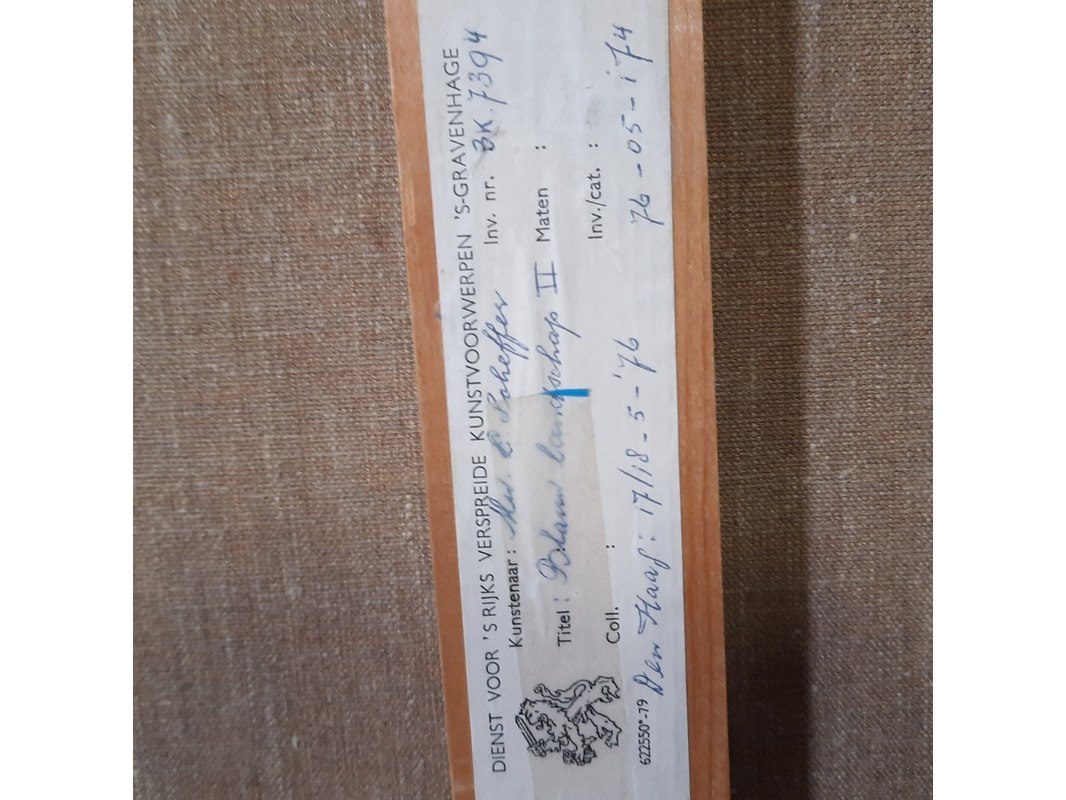 DIENST VOOR 'S RIJKS VERSPREIDE KUNSTVOORWERPEN 'S-GRAVENHAGE
Kunstenaar: Scheffer Inv. nr. BK. 7394
Titel: Blauw landschap II Maten :
Coll. : Inv./cat. :
Den Haag: 17/18-5-'76 76-05-174
622550*-79